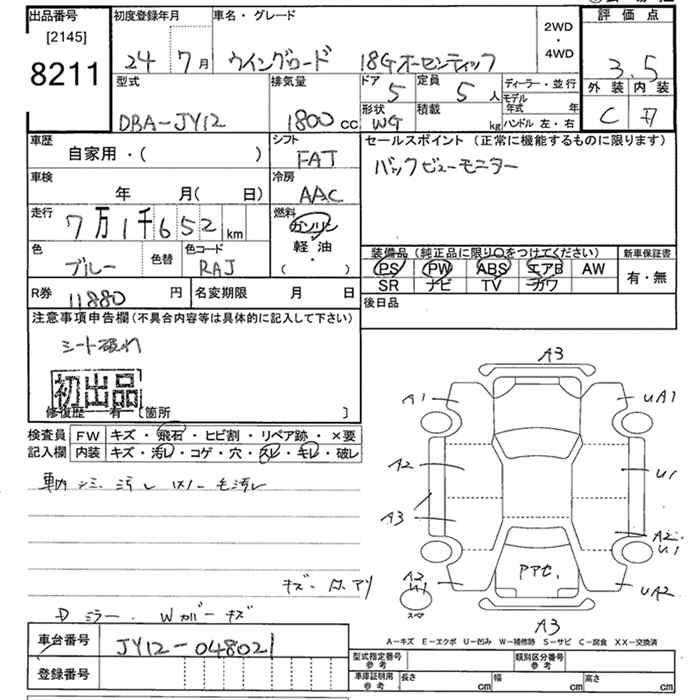 出品番号
[2145]
8211
初度登録年月
24 7月
車名・グレード
ウイングロード 18Gオーセンティック
2WD
・
4WD
評価点
3.5
外装 内装
C
型式
DBA-JY12
排気量
1800cc
ドア
5
定員
5人
形状
WG
積載
kg
ディーラー・並行
モデル年式 年
ハンドル 左・右
車歴
自家用・( )
シフト
FAT
セールスポイント (正常に機能するものに限ります)
バックビューモニター
車検
年 月( 日)
冷房
AAC
走行
7万1千652km
燃料
ガソリン
・
軽油
・
( )
色
ブルー
色替
色コード
RAJ
装備品 (純正品に限り〇をつけてください)
PS PW ABS エアB AW
SR ナビ TV カワ
新車保証書
有・無
R券
11880円
名変期限 月 日
後日品
注意事項申告欄(不具合内容等は具体的に記入して下さい)
シート破れ
初出品
修復歴 有 [箇所 ]
検査員記入欄
FW キズ・飛石・ヒビ割・リペア跡・×要
内装 キズ・汚レ・コゲ・穴・スレ・キレ・破レ
車内シミ汚レ
キズ・凹アリ
Dミラー・Wカバーキズ
車台番号
JY12-048021
登録番号
A3
A1
UA1
A2
U1
A3
A2
U1
A2
U1
UA2
A3
A-キズ E-エクボ U-凹み W-補修跡 S-サビ C-腐食 XX-交換済
型式指定番号 参考
類別区分番号 参考
車庫証明用 参考
長さ cm
幅 cm
高さ cm